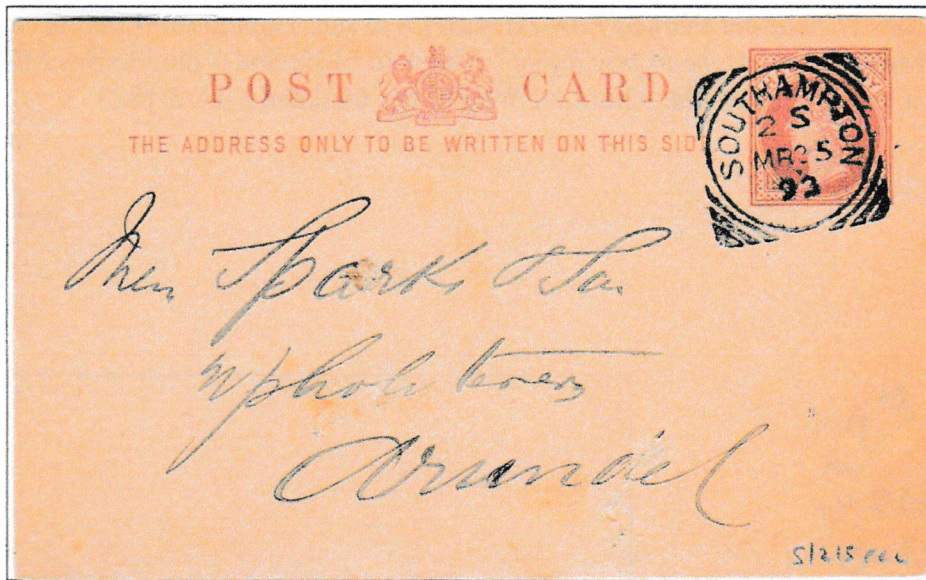 POST CARD
THE ADDRESS ONLY TO BE WRITTEN ON THIS SID
SOUTHAMPTON
S
2
MR 25
93
Sparks & Son
Upholsterers
Arundel